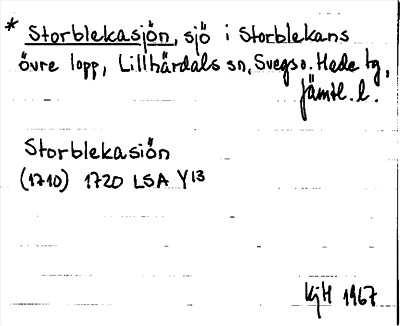 * Storblekasjön, sjö i Storblekans
övre lopp, Lillhärdals sn, Svegs o. Hede tg,
Jämtl. l.
Storblekasiön
(1710) 1720 LSA Y13
KjH 1967